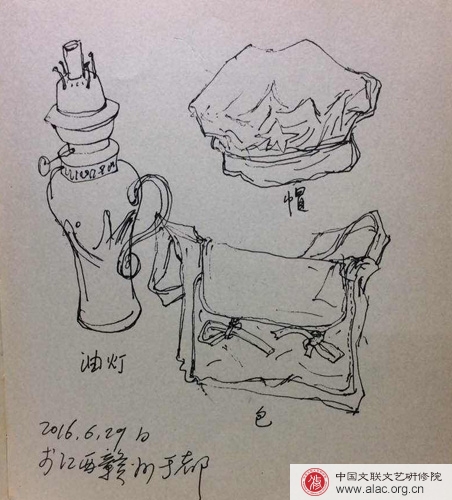 帽
油灯
包
2016.6.29日
于江西赣州于都
中国文联文艺研修院
www.alac.org.cn